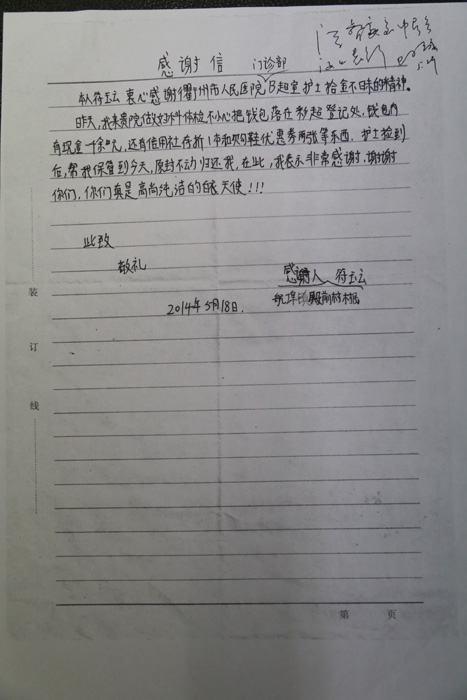 感谢信 门诊部
本人符玉云衷心感谢衢州市人民医院,B超室护士拾金不昧的精神。
昨天,我来贵院做妇科体检不小心把钱包落在彩超登记处,钱包内
有现金一千余元,还有信用社存折1本和购鞋优惠券两张等东西,护士捡到
后,帮我保管到今天,原封不动归还我,在此,我表示非常感谢,谢谢
你们,你们真是高尚纯洁的白衣天使!!!
此致
敬礼
感谢人 符玉云
殿前村村民
2014年5月18日.
装
订
线
第 页